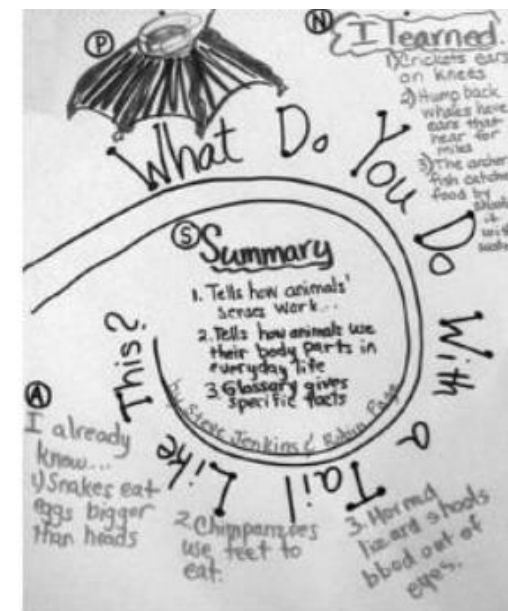 P
N
I learned.
1) Crickets ears
on knees
2) Humpback
whales have
ears that
hear for
miles
3) The archer
fish catches
food by
shooting
it
with
water
What Do You Do With a Tail Like This?
by Steve Jenkins & Robin Page
S
Summary
1. Tells how animals'
senses work...
2. Tells how animals use
their body parts in
everyday life
3. Glossary gives
specific facts
A
I already
know...
1) Snakes eat
eggs bigger
than heads
2. Chimpanzees
use feet to
eat.
3. Horned
lizard shoots
blood out of
eyes.